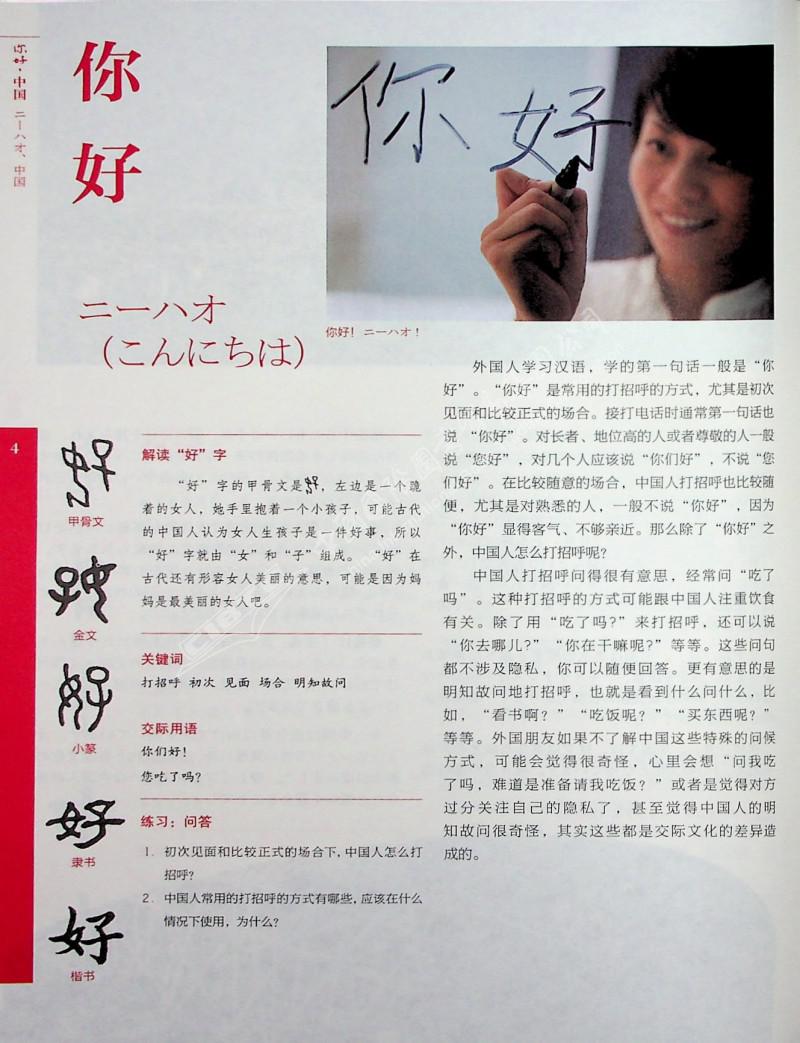 你好·中国 ニーハオ、中国
你
好
ニーハオ
（こんにちは）
你好
你好！ ニーハオ！
4
甲骨文
金文
小篆
隶书
楷书
好
好
好
解读“好”字
“好”字的甲骨文是，左边是一个跪
着的女人，她手里抱着一个小孩子，可能古代
的中国人认为女人生孩子是一件好事，所以
“好”字就由“女”和“子”组成。“好”在
古代还有形容女人美丽的意思，可能是因为妈
妈是最美丽的女人吧。
关键词
打招呼 初次 见面 场合 明知故问
交际用语
你们好！
您吃了吗？
练习：问答
1. 初次见面和比较正式的场合下，中国人怎么打
招呼？
2. 中国人常用的打招呼的方式有哪些，应该在什么
情况下使用，为什么？
外国人学习汉语，学的第一句话一般是“你
好”。“你好”是常用的打招呼的方式，尤其是初次
见面和比较正式的场合。接打电话时通常第一句话也
说 “你好”。对长者、地位高的人或者尊敬的人一般
说“您好”，对几个人应该说“你们好”，不说“您
们好”。在比较随意的场合，中国人打招呼也比较随
便，尤其是对熟悉的人，一般不说“你好”，因为
“你好”显得客气、不够亲近。那么除了“你好”之
外，中国人怎么打招呼呢？
中国人打招呼问得很有意思，经常问“吃了
吗”。这种打招呼的方式可能跟中国人注重饮食
有关。除了用“吃了吗？”来打招呼，还可以说
“你去哪儿？”“你在干嘛呢？”等等。这些问句
都不涉及隐私，你可以随便回答。更有意思的是
明知故问地打招呼，也就是看到什么问什么，比
如，“看书啊？”“吃饭呢？”“买东西呢？”
等等。外国朋友如果不了解中国这些特殊的问候
方式，可能会觉得很奇怪，心里会想“问我吃
了吗，难道是准备请我吃饭？”或者是觉得对方
过分关注自己的隐私了，甚至觉得中国人的明
知故问很奇怪，其实这些都是交际文化的差异造
成的。